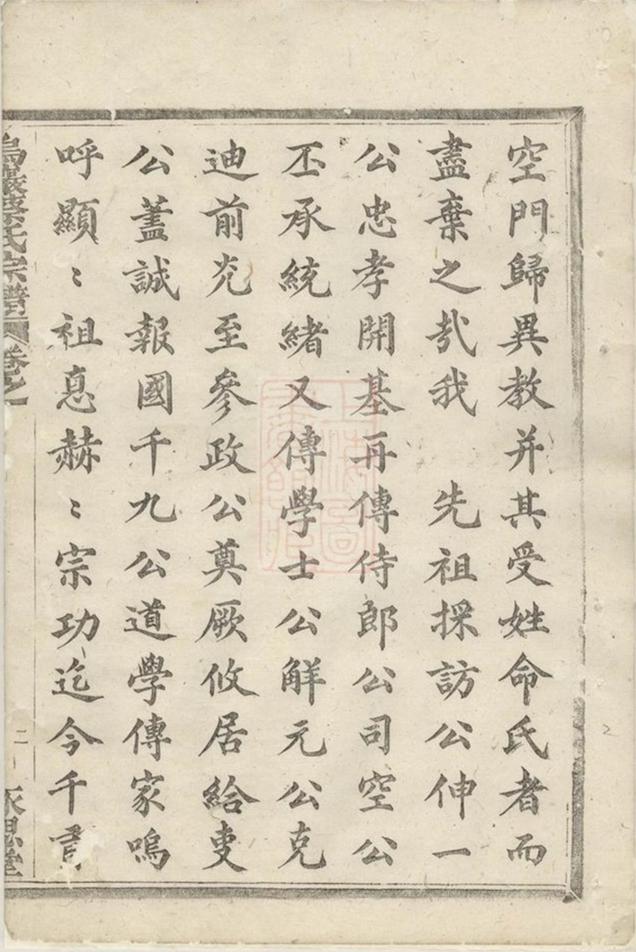 空門歸異教并其受姓命氏者而
盡棄之㢤我　先祖採訪公伸一
公忠孝開基再傳侍郎公司空公
丕承統緒又傳學士公解元公克
迪前光至參政公奠厥攸居給叓
公蓋誠報國千九公道學傳家嗚
呼顯〻祖悳赫〻宗功迄今千
氏宗譜 卷之一
二